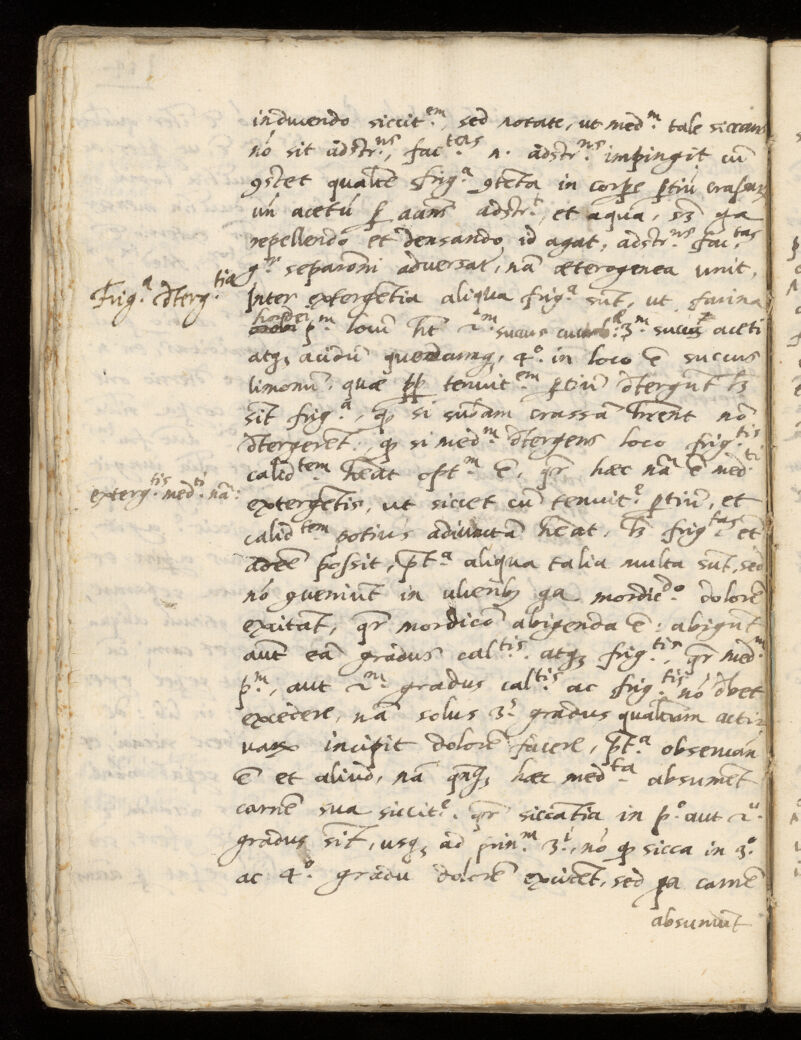 inducendo siccit.em, sed notate, ut med.m tale siccans
nō sit adstr.ns, fac.tas n. adstr.ns impingit cū
9stet qualit̄e frig.a 9tēta in corp̄e p̄tiū crass
un acetū adstr.t, et aqua, sȝ qa
repellendo et densando id agat, adstr.ns fac.tas
g.r separōni adversat.r, nā æterogenea unit.
Frig.a dterg.tia
Inter extergētia aliqua frig.a sūt, ut farina
hordei p.m locū h̄t 2.m succus 3.m succus aceti
atqȝ acidū quodcumqȝ, 4.o in loco ē succus
limonū. quæ pp̄ tenuit.em p̄tiū dtergūt lȝ
sīt frig.a, qā si subām crassā hrēnt nō
dtergerēt. qā si med.m dtergens loco frig.tis
calid.tem hēat opt.m ē, qr̄ hæc nā ē med.ti
exterg.tis med.ti nā:
extergētis, ut siccet cū tenuit.e p̄tiū, et
calid.tem potius adiunctā hēat, lȝ frig.tas et
adeē possit, p̄t.a aliqua talia multa sūt, sed
nō 9veniūt in ulceribȝ qa mordic.do dolorē
excitāt, qr̄ mordicō abigenda ē: abigūt
aūt eā gradus cal.tis atqȝ frig.tis, qr̄ med.m
p.m, aut 2.m gradus cal.tis ac frig.tis nō dbet
excedere, nā solus 3.s gradus qualitum acti
varū incipit dolorē facere, p̄t.a observan
ē et aliud, nā qn̄qȝ hæc med.ta absumēt
carnē sua siccit.e qr̄ siccātia in p.o aut 2.o
gradus sīt, usqȝ ad prin.m 3.i, nō qā sicca in 3.o
ac 4.o gradu dolorē excitēt, sed qa carnē
absumūt